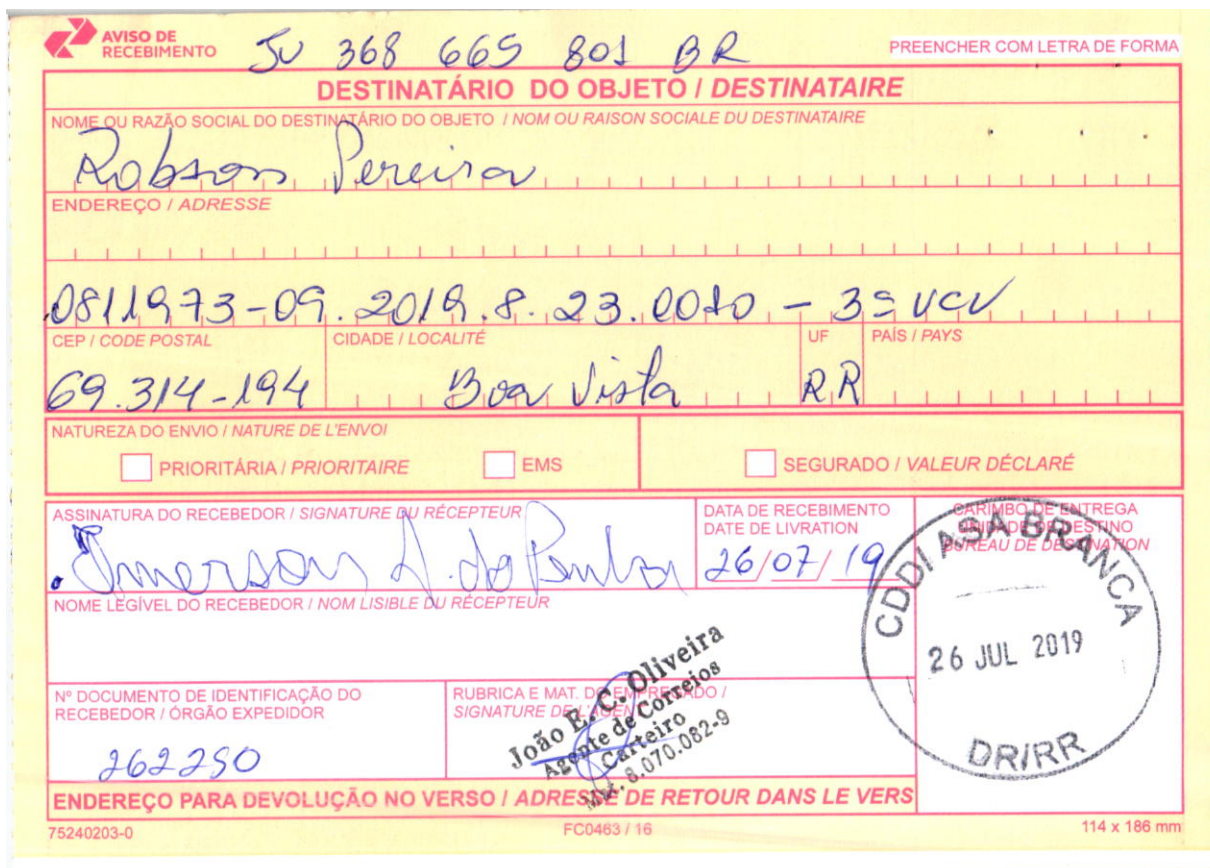 AVISO DE
RECEBIMENTO
JU 368 665 801 BR
PREENCHER COM LETRA DE FORMA
DESTINATÁRIO DO OBJETO / DESTINATAIRE
NOME OU RAZÃO SOCIAL DO DESTINATÁRIO DO OBJETO / NOM OU RAISON SOCIALE DU DESTINATAIRE
Robson Pereira
ENDEREÇO / ADRESSE
0811973-09.2019.8.23.0010 - 3ª VCV
CEP / CODE POSTAL CIDADE / LOCALITÉ UF PAÍS / PAYS
69.314-194 Boa Vista RR
NATUREZA DO ENVIO / NATURE DE L'ENVOI
PRIORITÁRIA / PRIORITAIRE EMS SEGURADO / VALEUR DÉCLARÉ
ASSINATURA DO RECEBEDOR / SIGNATURE DU RÉCEPTEUR
DATA DE RECEBIMENTO
DATE DE LIVRATION
26/07/19
CARIMBO DE ENTREGA
UNIDADE DE DESTINO
BUREAU DE DESTINATION
CDD/ASA BRANCA
26 JUL 2019
DR/RR
NOME LEGÍVEL DO RECEBEDOR / NOM LISIBLE DU RÉCEPTEUR
Nº DOCUMENTO DE IDENTIFICAÇÃO DO
RECEBEDOR / ÓRGÃO EXPEDIDOR
262250
RUBRICA E MAT. DO EMPREGADO /
SIGNATURE DE L'AGENT
João E. C. Oliveira
Agente de Correios
Carteiro
Mat. 8.070.082-9
ENDEREÇO PARA DEVOLUÇÃO NO VERSO / ADRESSE DE RETOUR DANS LE VERS
75240203-0 FC0463 / 16 114 x 186 mm